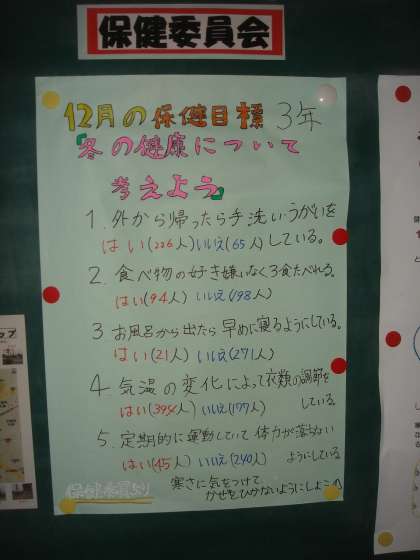 保健委員会
12月の保健目標 3年
「冬の健康について
考えよう」
1. 外から帰ったら手洗いうがいを
はい(226人)いいえ(65人)している。
2. 食べ物の好き嫌いなく3食たべれる。
はい(94人) いいえ(198人)
3 お風呂から出たら早めに寝るようにしている。
はい(21人) いいえ(271人)
4. 気温の変化によって衣類の調節を
はい(394人) いいえ(177人) している。
5. 定期的に運動していて体力が落ちない
はい(45人) いいえ(240人) ようにしている
寒さに気をつけて
かぜをひかないようにしましょう
保健委員より